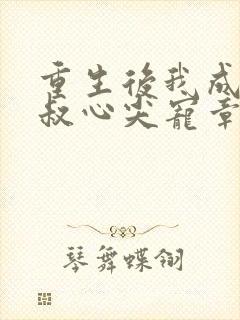 重生后我成
叔心尖宠章
琴舞蝶翎